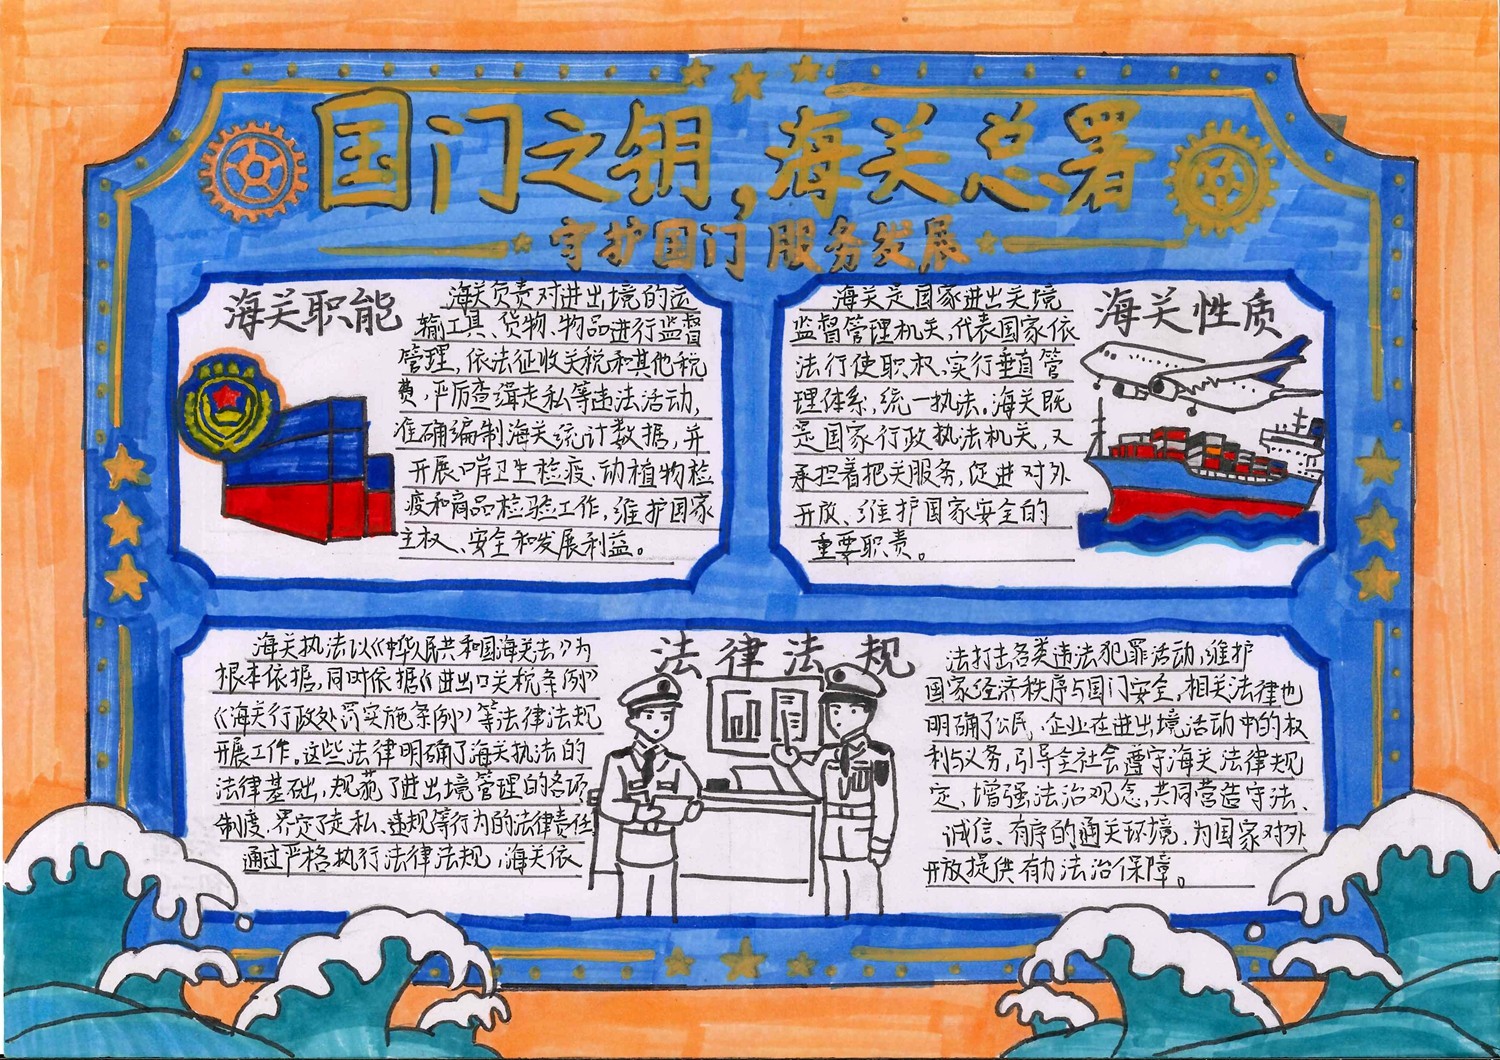 国门之钥,海关总署
守护国门 服务发展
海关职能
海关负责对进出境的运
输工具、货物、物品进行监督
管理，依法征收关税和其他税
费，严厉查缉走私等违法活动，
准确编制海关统计数据，并
开展口岸卫生检疫、动植物检
疫和商品检验工作，维护国家
主权、安全和发展利益。
海关性质
海关是国家进出关境
监督管理机关，代表国家依
法行使职权，实行垂直管
理体系，统一执法。海关既
是国家行政执法机关，又
承担着把关服务，促进对外
开放、维护国家安全的
重要职责。
法律法规
海关执法以《中华人民共和国海关法》为
根本依据，同时依据《进出口关税条例》
《海关行政处罚实施条例》等法律法规
开展工作。这些法律明确了海关执法的
法律基础，规范了进出境管理的各项
制度，界定了走私、违规等行为的法律责任
通过严格执行法律法规，海关依
法打击各类违法犯罪活动，维护
国家经济秩序与国门安全，相关法律也
明确了公民、企业在进出境活动中的权
利与义务，引导全社会遵守海关法律规
定，增强法治观念，共同营造守法、
诚信、有序的通关环境，为国家对外
开放提供有力法治保障。